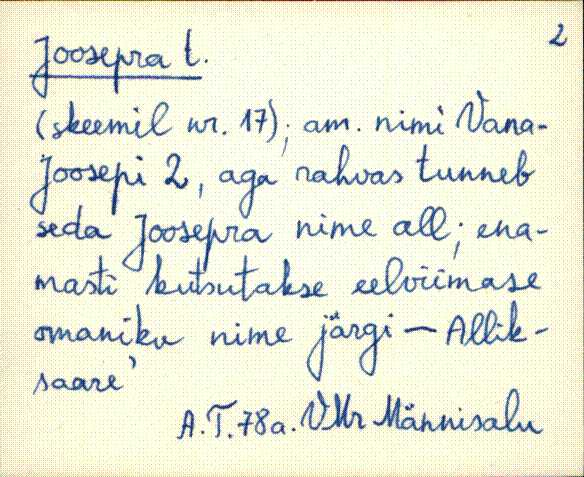 2
Joosepra t.
(skeemil nr. 17); am. nimi Vana-
Joosepi 2, aga rahvas tunneb
seda Joosepra nime all; ena-
masti kutsutakse eelviimase
omaniku nime järgi – Allik-
saare'
A.T. 78a. VMr Männisalu